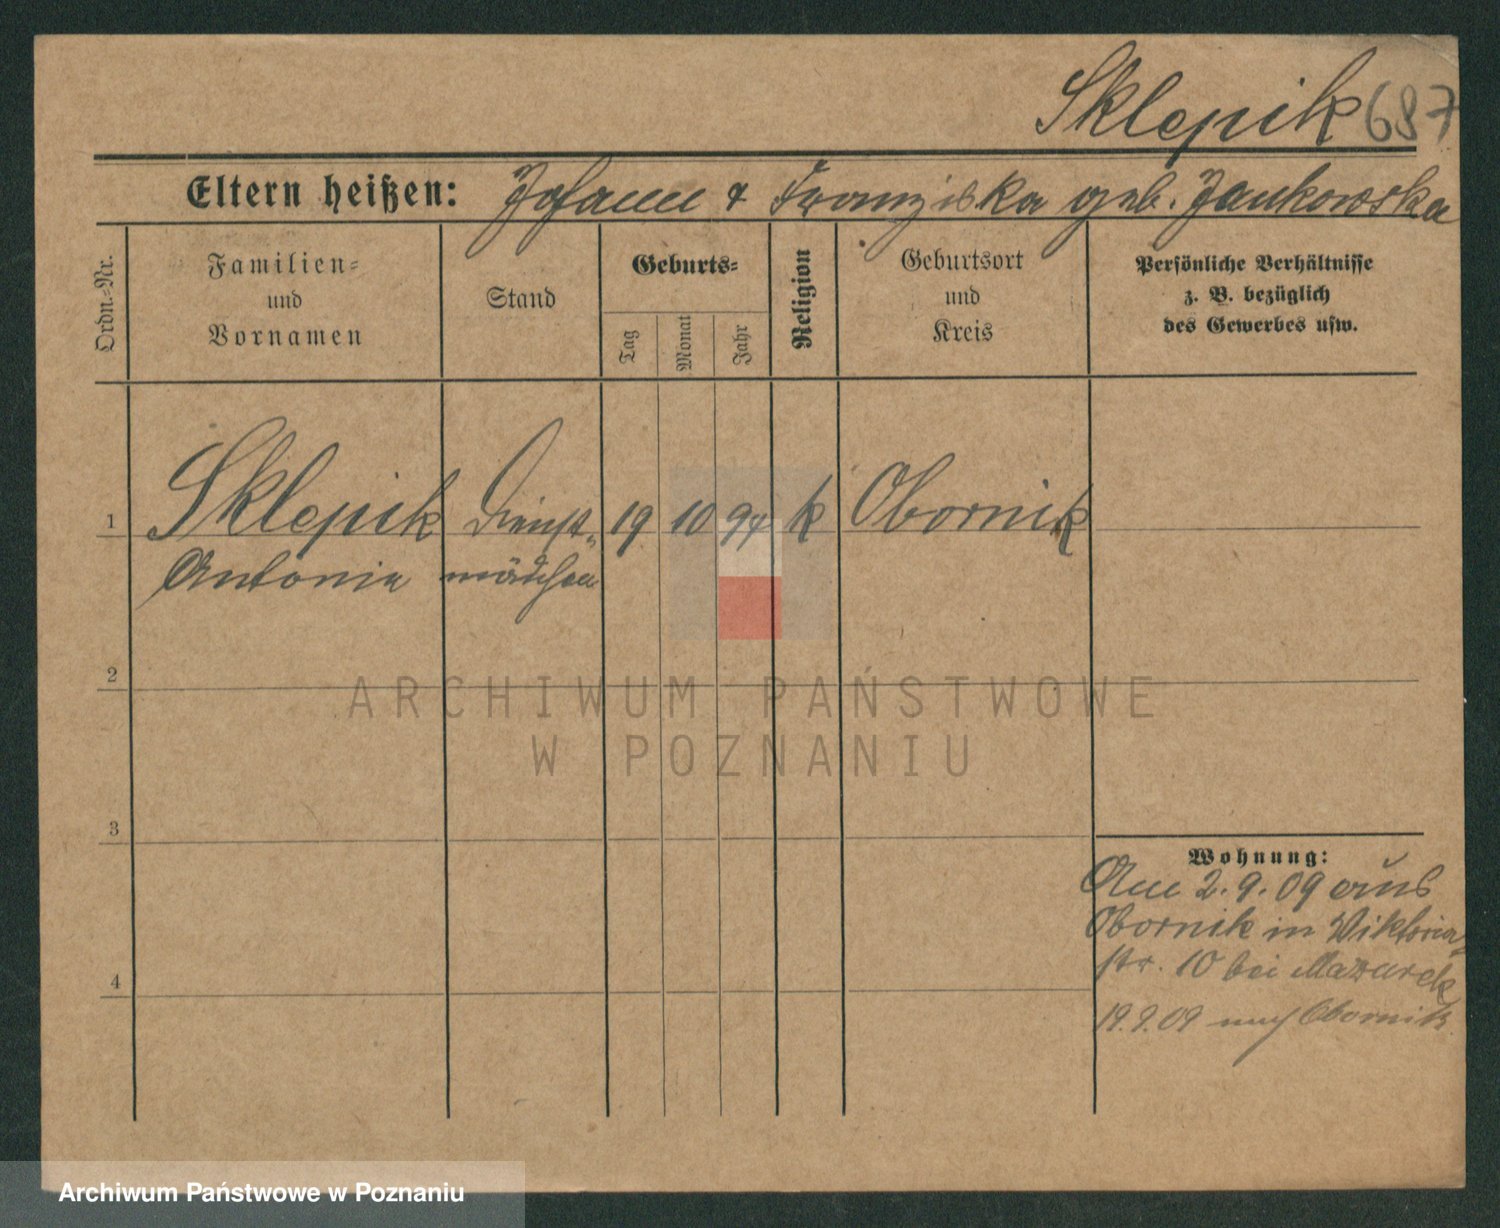 Sklepik 687
Eltern heißen: Johann & Franziska geb. Jankowska
Ordn.-Nr.
Familien-
und
Vornamen
Stand
Geburts-
Tag
Monat
Jahr
Religion
Geburtsort
und
Kreis
Persönliche Verhältnisse
z. B. bezüglich
des Gewerbes usw.
1 Sklepik Dienst- 19 10 94 k Obornik
Antonia mädchen
2
3
4
Wohnung:
Am 2.9.09 aus
Obornik in Viktoria-
str. 10 bei Mazurek
19.9.09 nach Obornik
ARCHIWUM PAŃSTWOWE
W POZNANIU
Archiwum Państwowe w Poznaniu